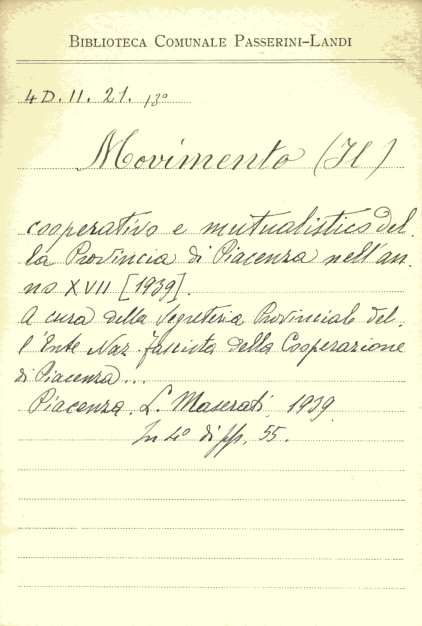 BIBLIOTECA COMUNALE PASSERINI-LANDI
4 D. 11. 21. 13°
Movimento (Il)
cooperativo e mutualistico del-
la Provincia di Piacenza nell'an-
no XVII [1939].
A cura della Segreteria Provinciale del-
l'Ente Naz. fascista della Cooperazione
di Piacenza...
Piacenza, L. Maserati, 1939
In 4° di pp. 55.